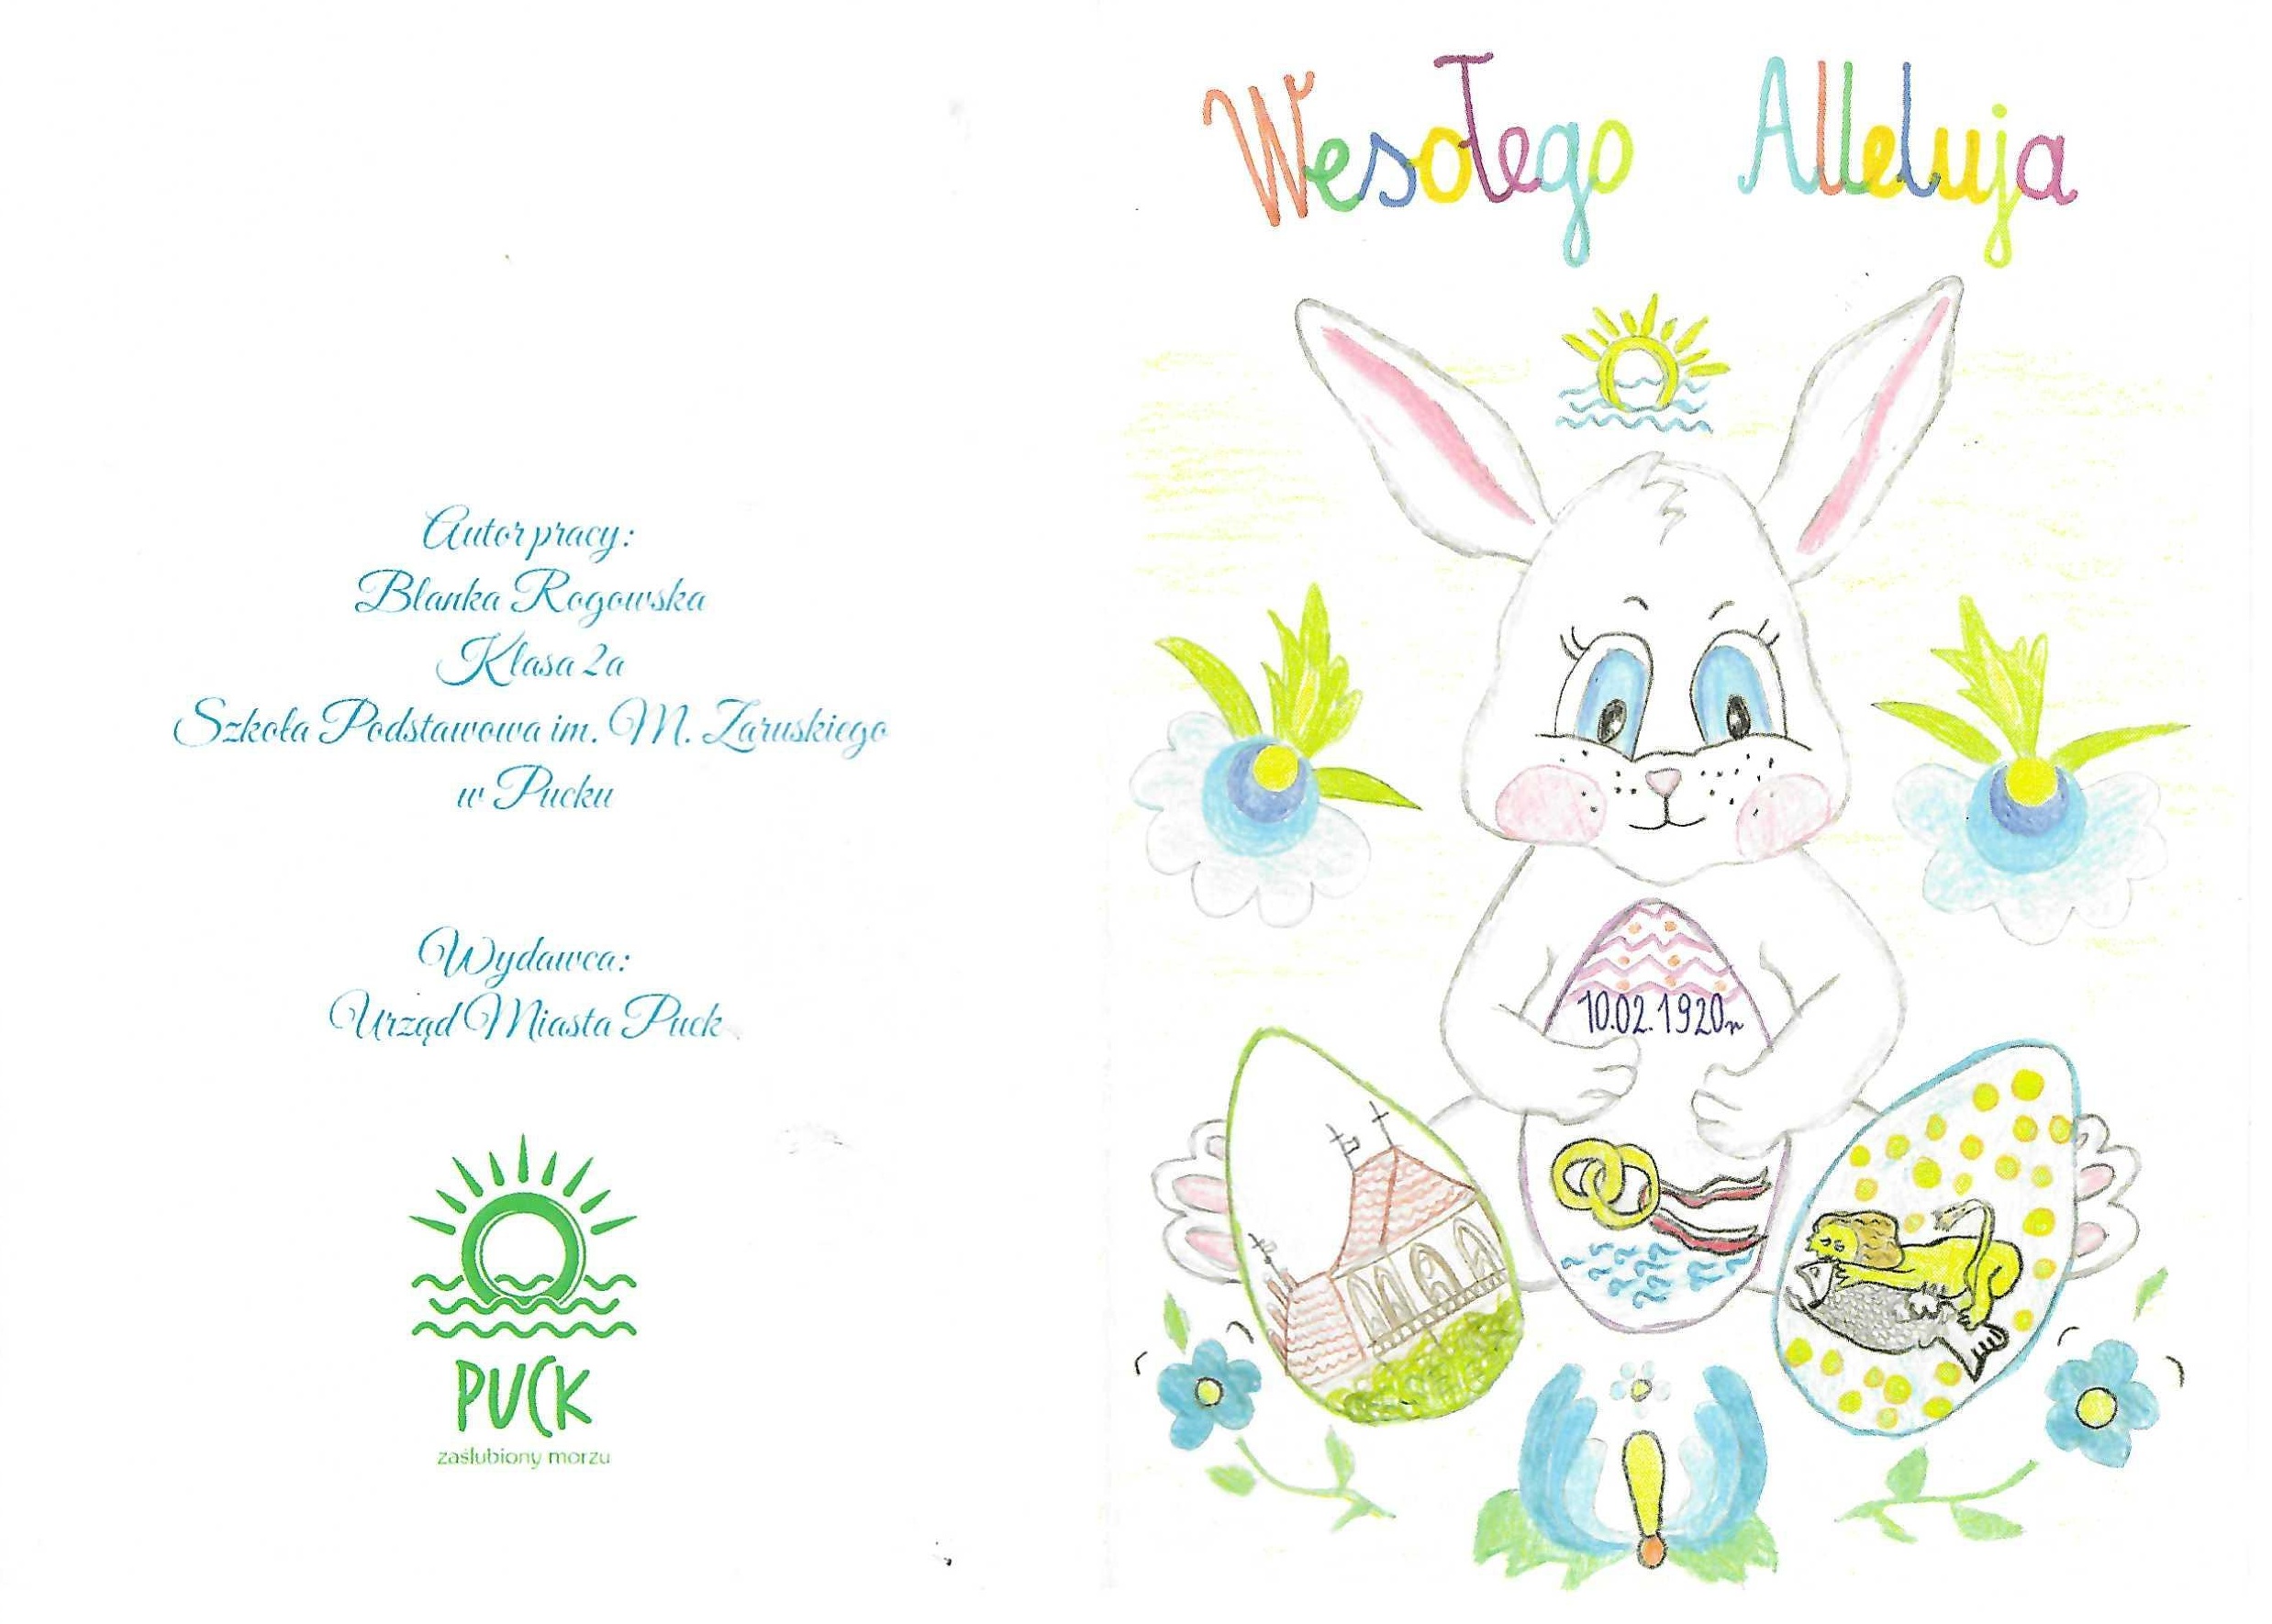 Autor pracy:
Blanka Rogowska
Klasa 2a
Szkoła Podstawowa im. M. Zaruskiego
w Pucku
Wydawca:
Urząd Miasta Puck
PUCK
zaślubiony morzu
Wesołego Alleluja
10.02.1920r